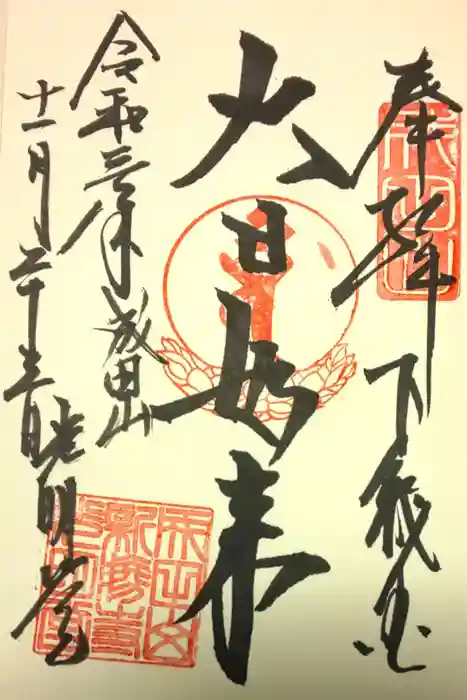 奉拝 下総国
成田山
大日如来
令和三年 成田山
十一月二十三日 光明堂
成田山新勝寺光明堂